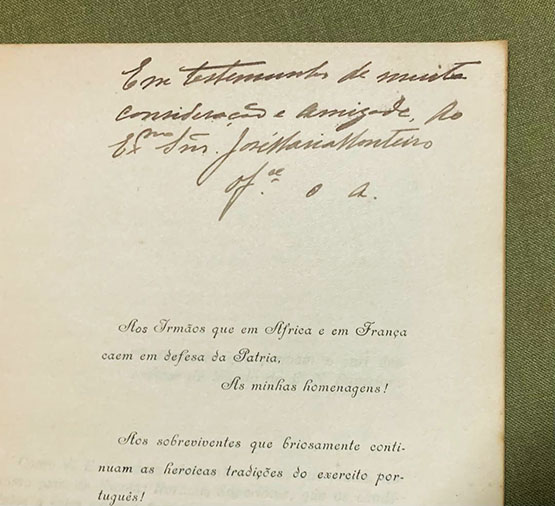 Em testemunho de muita
consideração e amizade, ao
Exmo Snr. José Maria Monteiro
Of.ce o a.
Aos Irmãos que em Africa e em França
caem em defesa da Patria,
As minhas homenagens!
Aos sobreviventes que briosamente conti-
nuam as heroicas tradições do exercito por-
tuguês!